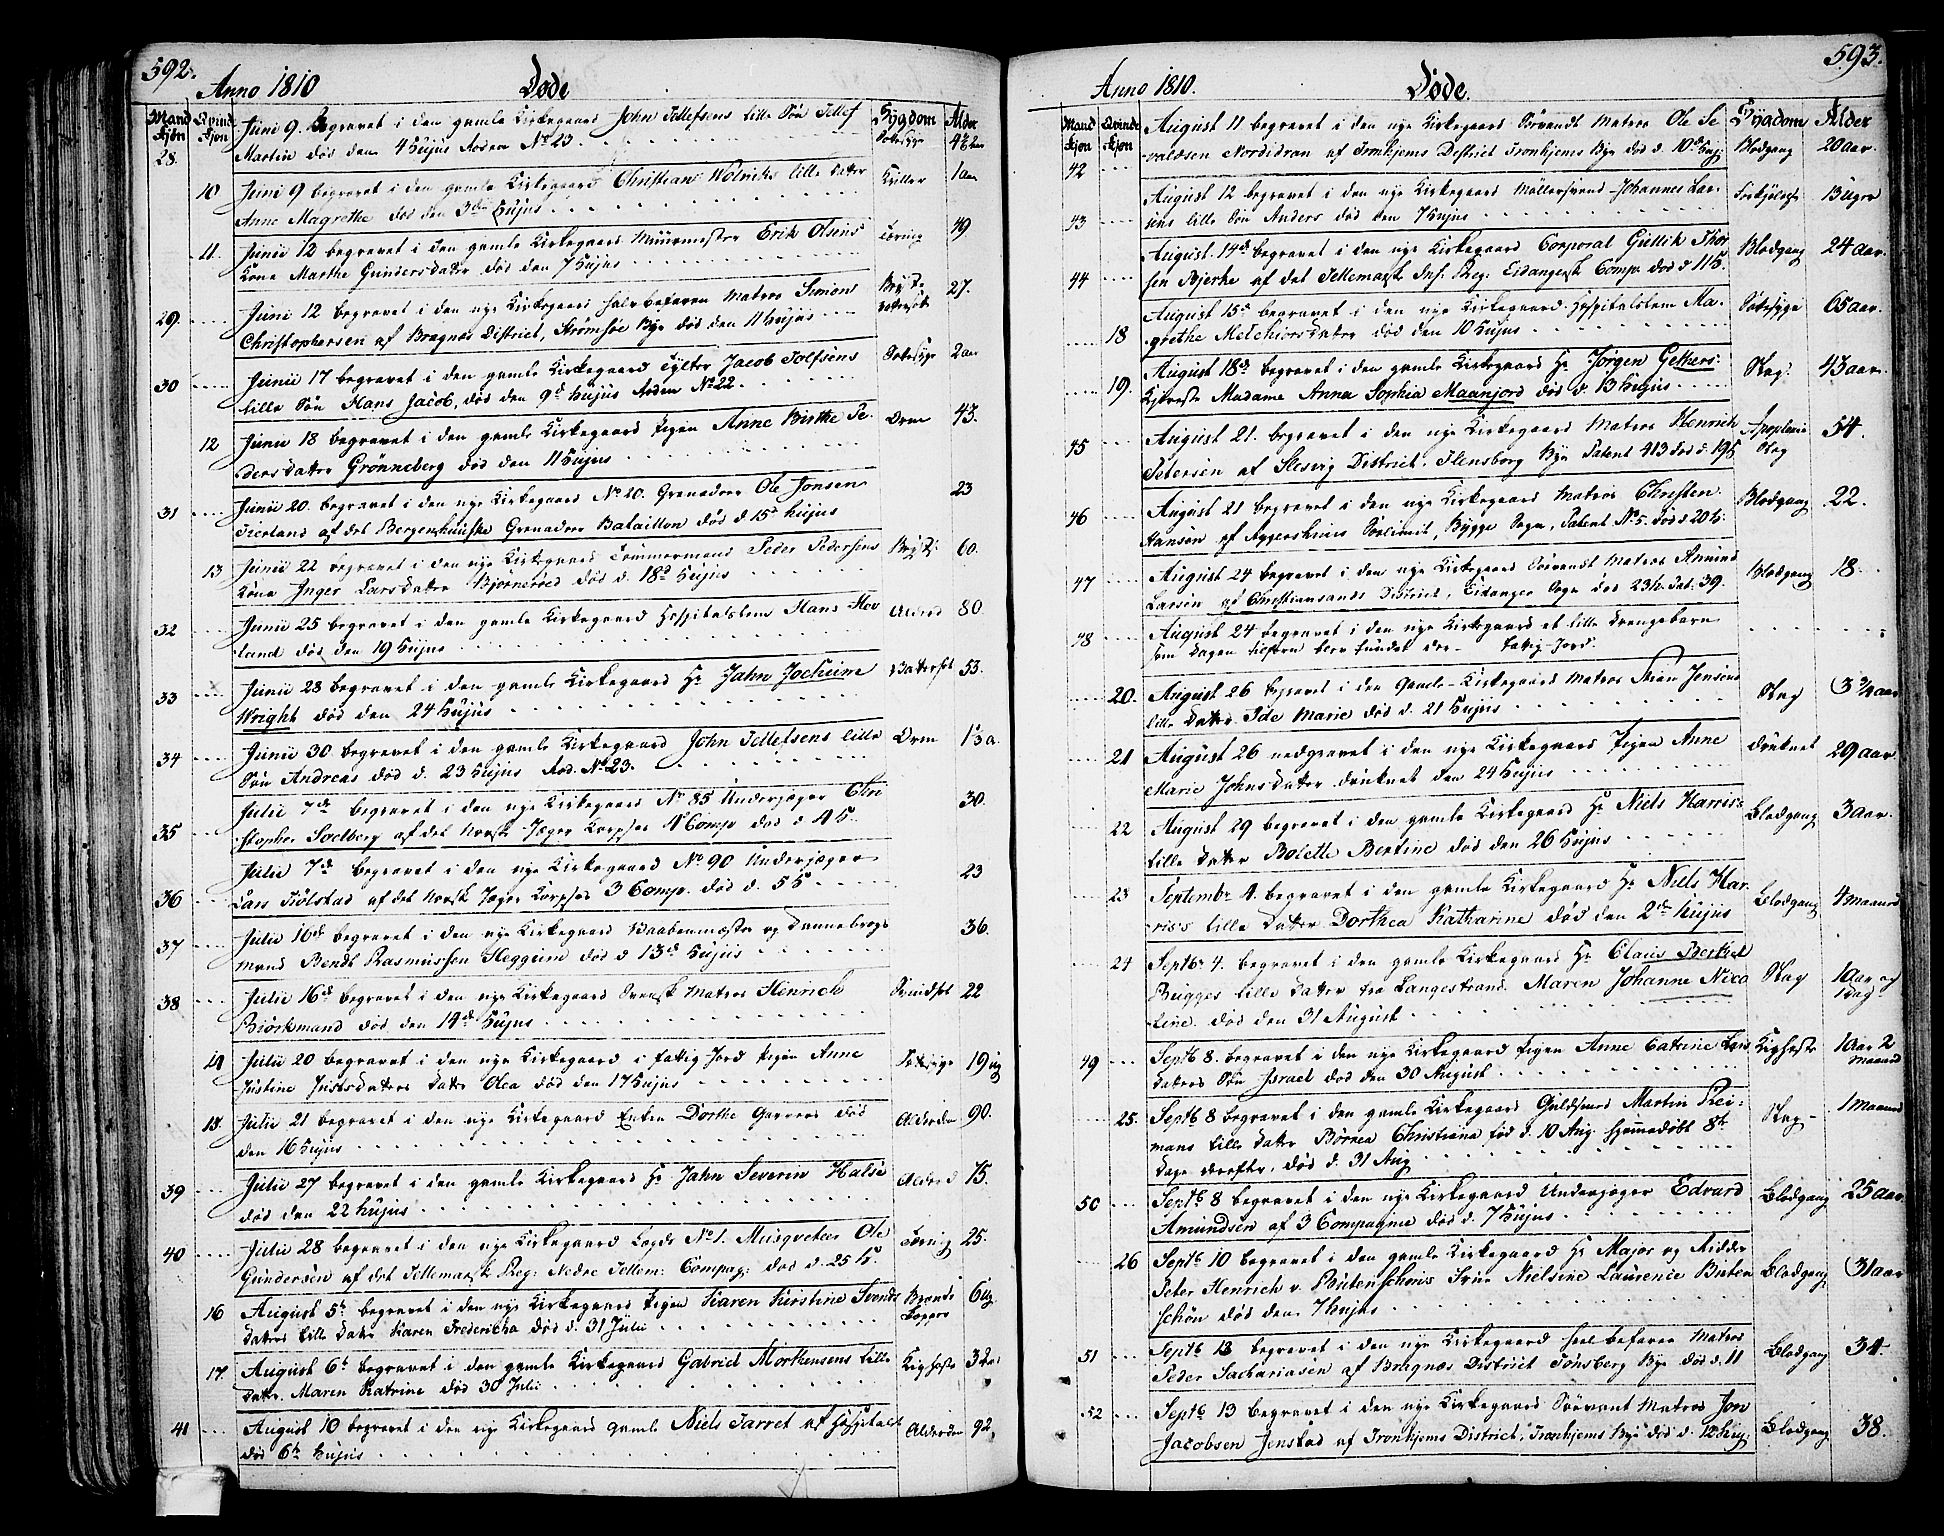 592.
Anno 1810
Døde
Mand Kjøn
Qvinde Kjøn
Sygdom
Alder
28.
Junii 9. begravet i den gamle Kirkegaard John Tellefsens lille Søn Tellef
Martin død den 4 hujus Roden No 23.
10
Junii 9 begravet i den gamle Kirkegaard Christians Wolrichs lille Datter
Anne Magrethe død den 3die hujus
1 aar
11.
Junii 12 begravet i den gamle Kirkegaard Muurmester Erik Olsens
Kone Marthe Gundersdatter død den 7 hujus
49
29.
Junii 12 begravet i den nye Kirkegaard halv befaren Matros Simon
Christophersen af Bragnæs District, Strømsøe Bye død den 11 hujus
27.
30
Junii 17 begravet i den gamle Kirkegaard Jacob Tolfsens
lille Søn Hans Jacob, død den 9d hujus Roden No 22.
2 aar
12
Junii 18 begravet i den gamle Kirkegaard Pigen Anne Birthe Pe-
dersdatter Grønneberg død den 11 hujus
Orm
43.
31
Junii 20. begravet i den nye Kirkegaard No 20. Grenadeer Ole Jonsen
af det Bergenhuuske Grenadeer Bataillon død d 15d hujus
23
13
Junii 22 begravet i den nye Kirkegaard Tømmermand Peder Pedersens
Kone Inger Larsdatter Bjørnerøed død d. 18d hujus
60.
32
Junii 25 begravet i den gamle Kirkegaard Hospitalslem Hans Hov
land død den 19 hujus
Alderd
80.
33
Junii 28 begravet i den gamle Kirkegaard Hr Jahn Jochum
Wright død den 24 hujus
Vattersot
53.
34
Junii 30 begravet i den gamle Kirkegaard John Tellefsens lille
Søn Andreas død d. 23 hujus Rod. No 23.
Orm
35
Julii 7de begravet i den nye Kirkegaard No 85 Underjæger Chri
stopher Soelberg af det Norsk Jæger Korpses 4 Comp død d 4 h.
30.
36
Julii 7de begravet i den nye Kirkegaard No 90 Underjæger
Lars Tiølstad af det Norsk Jæger Korpses 3 Comp. død d. 5 h
23
37
Julii 16d begravet i den nye Kirkegaard Baabenmester og Dannebrogs
mand Bendt Rasmussen Heggum død d 13d hujus
36.
38
Julii 16d begravet i den nye Kirkegaard Svensk Matros Henrich
Biørkmand død den 14d hujus
22
14
Julii 20 begravet i den nye Kirkegaard i fattig Jord Pigen Anne
Justine Justsdatters Datter Olea død den 17 hujus
19 ug
15.
Julii 21 begravet i den nye Kirkegaard Enken Dorthe død
den 16 hujus
Alderdom
90.
39
Julii 27 begravet i den gamle Kirkegaard Hr Jahn Severin Halse
død den 22 hujus
Alderd
75.
40
Julii 28 begravet i den nye Kirkegaard No 1. Musqveteer Ole
Gundersen af det Tellemarsk Reg: Nedre Tellem: Compag: død d. 25 h.
25.
16
August 5t begravet i den nye Kirkegaard Pigen Karen Kirstine Svends
datters lille Datter Karen Fredericha død d. 31 Julii
6 ug.
17.
August 6t begravet i den gamle Kirkegaard Gabriel Morthensens lille
Datter Maren Katrine død 30 Julii
Kighoste
41
August 10 begravet i den nye Kirkegaard gamle Niels Jarret af Hospitalet
død 6t hujus
Alderdom
92.
593.
Anno 1810.
Døde.
Mand Kjøn
Qvinde Kjøn
Sygdom
Alder
42
August 11 begravet i den nye Kirkegaard Matros Ole Se
valdsen Nordidran af Tronhjems District Tronhjems Bye død d. 10de huj
Blodgang
20 aar.
43
August 12 begravet i den nye Kirkegaard Møllersvend Johannes Lar-
sens lille Søn Anders død den 7 hujus
13 uger
44
August 14d begravet i den nye Kirkegaard Corporal Gullik Thor
sen Bjerke af det Tellemarsk Inf. Reg: Eidangersk Comp. død d 11 h.
Blodgang
24 aar.
18
August 15d begravet i den nye Kirkegaard Hospitalslem Ma-
grethe Melchiorsdatter død den 10 hujus
65 aar
19.
August 18d begravet i den gamle Kirkegaard Hr Jørgen Gethers:
Kjæreste Madame Anna Sophia Maanjord død d. 13 hujus
Slag.
43 aar.
45
August 21. begravet i den nye Kirkegaard Matros Henrich
Petersen af Slesvig District, Flensborg Bye Patent 413 død d. 19 h
Apoplexie
Slag
54.
46
August 21 begravet i den nye Kirkegaard Matros Christen
Hansen af Aggershuus Bygge Sogn, Patent No 5. død d 20 h.
Blodgang
22.
47
August 24 begravet i den nye Kirkegaard Matros Amund
Larsen af Christiansands District, Eidanger Sogn død 23 h. Pat. 39.
Blodgang
18
48
August 24 begravet i den nye Kirkegaard et lille Drengebarn
som Dagen tilforn blev fundet død fattig-Jord.
20.
August 26 begravet i den Gamle Kirkegaard Matros Jensens
lille Datter Ide Marie død d. 21 hujus
Slag
3 3/4 aar
21
August 26 nedgravet i den nye Kirkegaard Pigen Anne
Marie Johnsdatter druknet den 24 hujus
druknet
29 aar.
22
August 29 begravet i den gamle Kirkegaard Hr Niels Harris's
lille Datter Bolette Bertine død den 26 hujus
Blodgang
3 aar.
23
Septembr 4. begravet i den gamle Kirkegaard Hr Niels Har-
ris's lille Datter Dorthea Katharine død den 2den hujus
Blodgang
4 Maaned
24
Septbr 4. begravet i den gamle Kirkegaard Hr Claus Berthel
Bugges lille Datter fra Langestrand. Maren Johanne Nico
line. død den 31 August
Slag
1 Aar og
1 Dag
49
Septb 8. begravet i den nye Kirkegaard Pigen Anne Catrine Lars
datters Søn Israel død den 30 August
Kighoste
1 Aar 2
Maaned
25.
Septb 8 begravet i den gamle Kirkegaard Guldsmed Martin Rei-
mans lille Datter Børnea Christiana fød d. 10 Aug. hjemmedøbt 8te
Dage derefter, død d. 31 Aug
Slag
1 Maaned
50
Septb 8 begravet i den nye Kirkegaard Underjæger Edvard
Amundsen af 3 Compagnie død d. 7 hujus
Blodgang
25 aar.
26
Septb 10 begravet i den gamle Kirkegaard Hr Major og Ridder
Peter Henrich v. Butenschøns Frue Nielsine Laurence Buten
schøn død den 7 hujus
Blodgang
31 aar
51
Septb 13 begravet i den nye Kirkegaard heel befaren Matros
Peder Sachariasen af Bragnæs District Tønsberg Bye død d. 11
Blodgang
34.
52
Septb 13 begravet i den nye Kirkegaard Matros Jon
Jacobsen Jenstad af Tronhjems District, Tronhjems Bye død d. 12 huj
Blodgang
38.